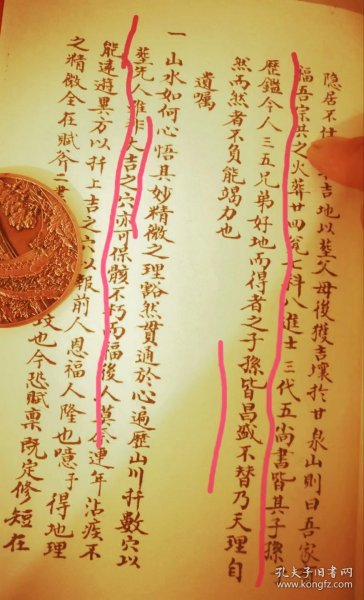 隐居不仕 吉地以塟父母後獲吉壤扵甘泉山則曰吾家
福吾宗共之火葬廿四 七科八進士三代五尚書皆其子孫
歷鑑今人三五兄弟好地而得者之子孫皆昌盛不替乃天理自
然而然者不負能竭力也
遺嘱
一 山水如何心悟其妙精微之理豁然貫通於心遍歷山川扦數穴以
塟先人雖非大吉之穴亦可保骸不朽而福後人莫 連年沾疾不
能遠遊異方以扦上吉之穴以報前人恩福人隆也噫予得地理
之精微全在賦 也今恐賦禀既定修短在
孔夫子旧书网
www.kongfz.com